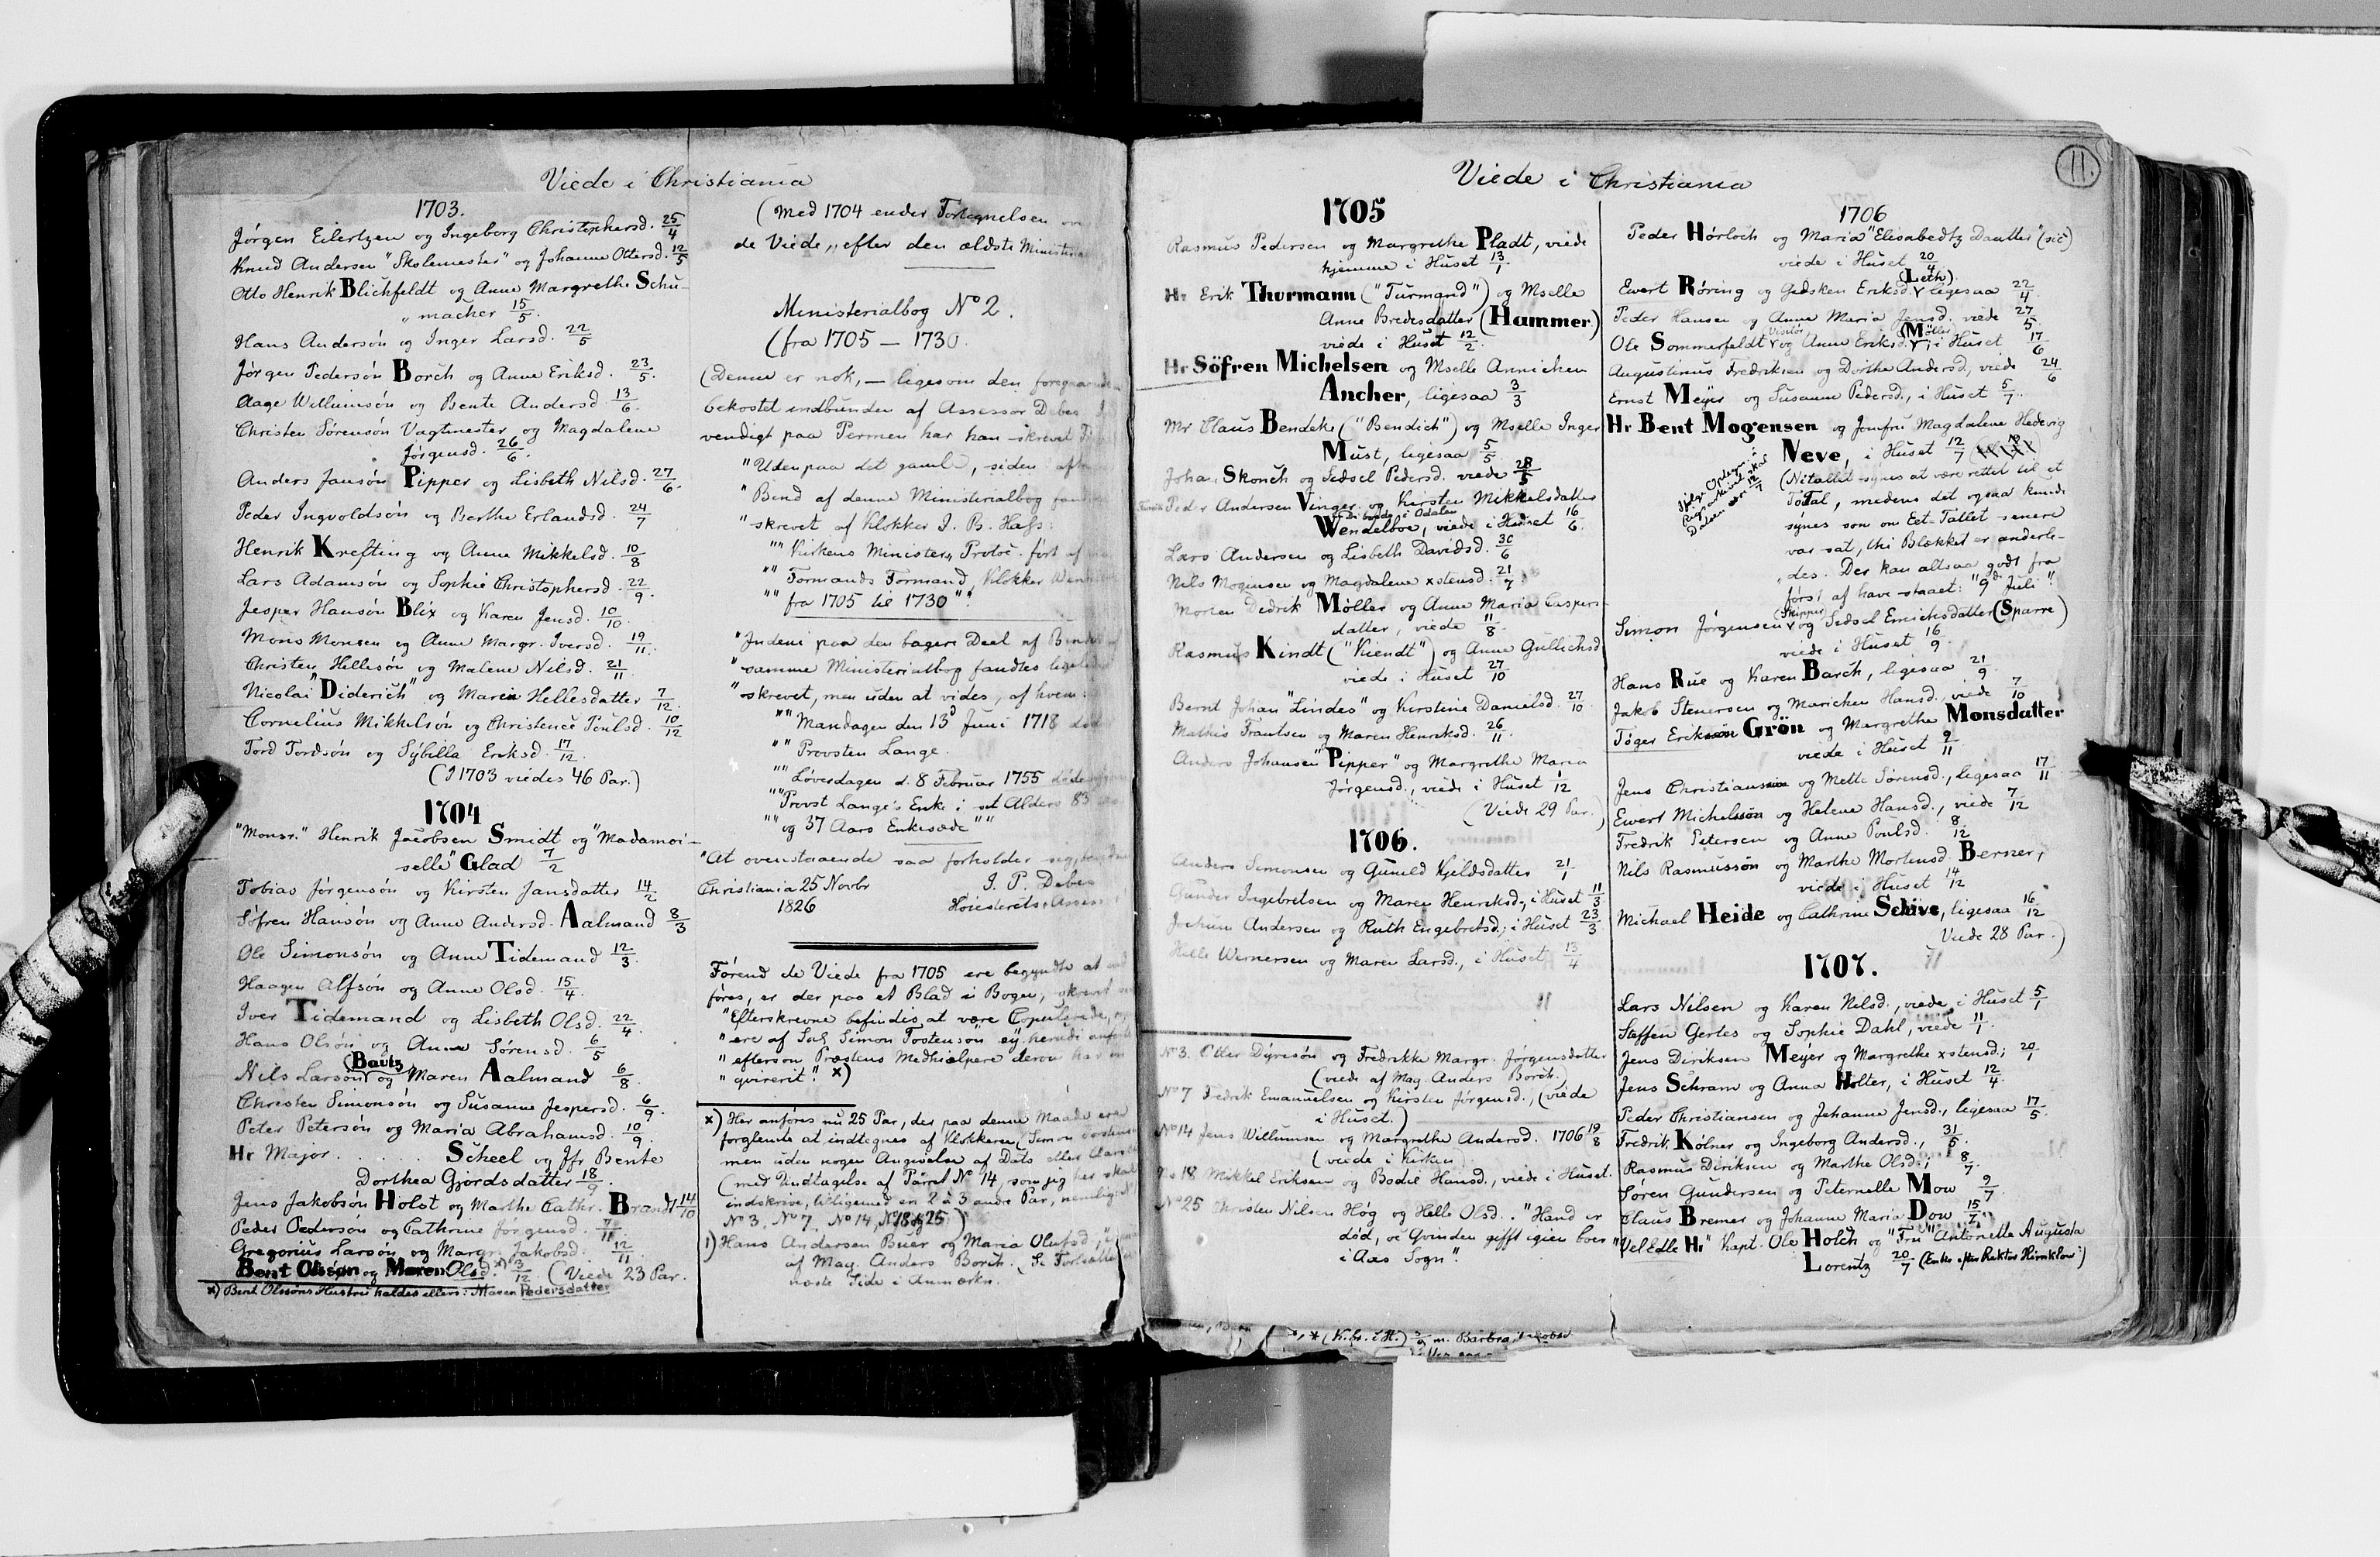 Viede i Christiania
1703.
Jørgen Eilertzen og Ingeborg Christophersd. 25/4
Knud Andersen "Skolemester" og Johanne Ottersd. 12/5
Otto Henrik Blichfeldt og Anne Margrethe Schu-
"macher 15/5.
Hans Andersøn og Inger Larsd. 22/5
Jørgen Pedersøn Borch og Anne Eriksd. 23/5.
Aage Willumsøn og Bente Andersd. 13/6.
Christen Sørensøn Vagtmester og Magdalene
Jørgensd. 26/6.
Anders Jansøn Pipper og Lisbeth Nilsd. 27/6.
Peder Ingvoldsøn og Berthe Erlandsd. 24/7
Henrik Krefting og Anne Mikkelsd. 10/8
Lars Adamsøn og Sophie Christophersd. 22/9.
Jesper Hansøn Blix og Karen Jensd. 10/10.
Mons Monsen og Anne Margr. Iversd. 19/11.
Christen Hellesøn og Malene Nilsd. 21/11
Nicolai "Diderich" og Maren Hellesdatter 7/12.
Cornelius Mikkelsøn og Christence Poulsd. 10/12
Tord Tordsøn og Sybilla Eriksd. 17/12.
(I 1703 viedes 46 Par.)
1704
"Monsr." Henrik Jacobsen Smidt og "Madamoi-
selle" Glad 7/2
Tobias Jørgensøn og Kirsten Jansdatter 14/2
Söfren Hansøn og Anne Andersd. Aalmand 8/3
Ole Simonsøn og Anne Tidemand 12/3.
Haagen Alfsøn og Anne Olsd. 15/4.
Iver Tidemand og Lisbeth Olsd. 22/4.
Hans Olsøn og Anne Sørensd. 6/5
(Bautz)
Nils Larsøn og Maren Aalmand 6/8
Christen Simonsøn og Susanne Jespersd. 6/9.
Peter Petersøn og Maria Abrahamsd. 10/9.
Hr Major . . . . . Scheel og Jfr Bente
Dorthea Gjordsdatter 18/9.
Jens Jakobsøn Holst og Marthe Cathr. Brandt 14/10
Peder Pedersøn og Cathrine Jørgensd. 7/11.
Gregorius Larsøn og Margr. Jakobsd. 12/11.
Bent Olssøn og Maren Olsd. x) 3/12. (Viede 23 Par.
x) Bent Olssøns Hustru kaldes ellers: Maren Pedersdatter
(Med 1704 ender Fortegnelsen
de Viede, efter den ældste
Ministerialbog No 2.
(fra 1705 – 1730.
(Denne er nok, – ligesom den
bekostet indbunden af Assessor Debes
vendigt paa Permen har han skrevet
"Uden paa det gamle, siden
"Bind af denne Ministerialbog
"skrevet af Klokker J. B. Hass:
"" Kirkens Minister. Protoc. ført af
"" Formands Formand, Klokker
"" fra 1705 til 1730"".
"Indeni paa den bagere Deel af
"samme Ministerialbog fandtes
"skrevet, men uden at vides, af hvem:
"" Mandagen den 13d Juni 1718
"" Provsten Lange.
"" Løverdagen d. 8 Februar 1755
"" Provst Lange's Enke i sit Alders 83
"" og 37 Aars Enkesæde ""
"At ovenstaaende saa forholder sig,
Christiania 25 Novbr J. P. Debes
1826 Høiesterets
Førend de Viede fra 1705 ere begyndte at
føres, er der paa et Blad i Bogen, skrevet
"Efterskrevne befindes at være Copulerede,
"ere af Sal. Simon Tostensøn ey herudi
"eftersom Præstens Medhielpere derom
"qvirerit". x)
x) Her anføres nu 25 Par, der paa denne Maade ere
forglemte at indtegnes af Klokkeren (Simon
men uden nogen Angivelse af Dato eller
(med Undtagelse af Parret No 14, som jeg her skal
indskrive, tilligemed en 2 à 3 andre Par, nemlig
No 3, No 7, No 14, No 18 og 25)
1) Hans Andersen Buer og Maria Olufsd.,
af Mag. Anders Borch. (Se
næste Side i Anmærkn.
Viede i Christiania
11.
1705
Rasmus Pedersen og Margrethe Pladt, viede
hjemme i Huset 13/1.
Hr Erik Thurmann ("Turmand") og Mselle
Anne Bredesdatter (Hammer)
viede i Huset 12/2.
Hr Söfren Michelsen og Mselle Annichen
Ancher, ligesaa 3/3
Mr Claus Bendeke ("Bendich") og Mselle Inger
Must, ligesaa 5/5.
Johan Skonch og Sidsel Pedersd. viede 28/5
Peder Andersen Vinger og Kirsten Mikkelsdatter
Wendelboe, viede i Huset 16/6.
Lars Andersen og Lisbeth Davidsd. 30/6
Nils Mogensen og Magdalene xstensd. 21/7.
Morten Didrik Møller og Anne Maria Caspers-
datter, viede 11/8.
Rasmus Kindt ("Kiendt") og Anne Gullichsd
viede i Huset 27/10
Bernt Johan "Lindes" og Kirstine Danielsd. 27/10.
Mathis Frantsen og Maren Henriksd. 26/11.
Anders Johansen "Pipper" og Margrethe Maria
Jørgensd., viede i Huset 1/12
(Viede 29 Par.)
1706.
Anders Simonsen og Gunild Kjeldsdatter 21/1
Gunder Ingebretsen og Maren Henriksd., i Huset 11/3.
Jochum Andersen og Ruth Engebretsd., i Huset 23/3
Helle Wernersen og Maren Larsd., i Huset 13/4
No 3. Otter Dyresøn og Fredrikke Margr. Jørgensdatter
(viede af Mag. Anders Borch.)
No 7 Fredrik Emanuelsen og Kirsten Jørgensd., (viede
i Huset.)
No 14 Jens Willumsen og Margrethe Andersd. 1706 19/8
(viede i Kirken)
No 18 Mikkel Eriksen og Bodil Hansd., viede i Huset.
No 25 Christen Nilsen Høg og Helle Olsd.. "Hand er
død, oc Qvinden gifft igien boer
i Aas Sogn".
1706
Peder Hörloch og Maria "Elisabedtz Daatter" (sic)
viede i Huset 20/4
(Leth)
Ewert Röring og Gidsken Eriksd. ligesaa 22/4.
Peder Hansen og Anne Maria Jensd. viede 27/5.
(Visitör) (Möller)
Ole Sommerfeldt og Anne Eriksd., i Huset 17/6
Augustinus Fredriksen og Dorthe Andersd, viede 24/6
Ernst Meyer og Susanne Pedersd., i Huset 5/7.
Hr Bent Mogensen og Jomfru Magdalene Hedevig
Neve, i Huset 12/7
(Nitallet synes at være rettet til et
ToTal, medens det ogsaa kunde
synes som om Eet-Tallet senere
var sat, thi Blækket er anderle-
des. Der kan altsaa godt fra
først af have staaet: "9de Juli".
(Skipper)
Simon Jørgensen og Sidsel Emichsdatter (Sparre)
viede i Huset 16/9
Hans Rue og Karen Barch, ligesaa 21/9
Jakob Stenersen og Marichen Hansd. viede 7/10
Tøger Eriksøn Grön og Margrethe Monsdatter
viede i Huset 9/11
Jens Christiansen og Mette Sørensd., ligesaa 17/11
Ewert Michelsøn og Helene Hansd., viede 7/12
Fredrik Petersen og Anne Poulsd. 8/12
Nils Rasmussøn og Marthe Mortensd Berner,
viede i Huset 14/12
Michael Heide og Cathrine Schive, ligesaa 16/12
Viede 28 Par.)
1707.
Lars Nilsen og Karen Nilsd., viede i Huset 5/1
Steffen Gertes og Sophie Dahl, viede 11/1.
Jens Diriksen Meyer og Margrethe xstensd.; 20/1
Jens Schram og Anna Holter, i Huset 12/4.
Peder Christiansen og Johanne Jensd., ligesaa 17/5.
Fredrik Kölner og Ingeborg Andersd., 31/5.
Rasmus Diriksen og Marthe Olsd., 8/7.
Søren Gundersen og Peternelle Mow 9/7.
Claus Bremer og Johanne Maria Dow 15/7
"Vel Edle Hr" Kapt. Ole Holch og "Fru" Antonette Augusta
Lorentz 20/7 (Enke efter Rektor Hirnklow)